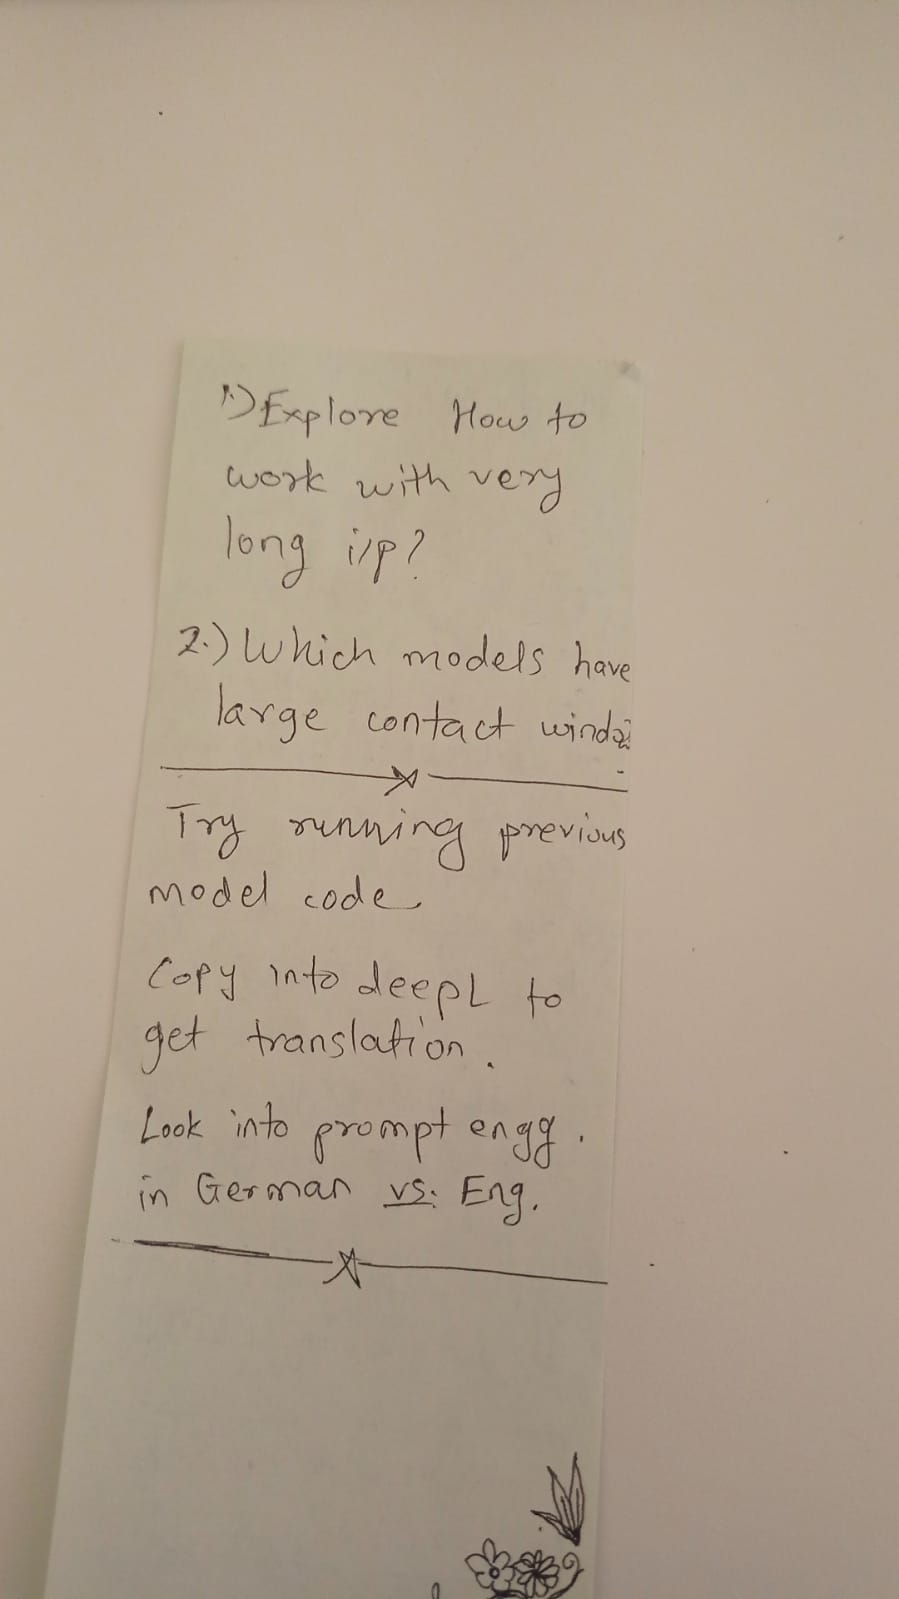 1.) Explore How to
work with very
long i/p?
2.) Which models have
large contact window?
Try running previous
model code.
Copy into deepL to
get translation.
Look into prompt engg.
in German vs. Eng.